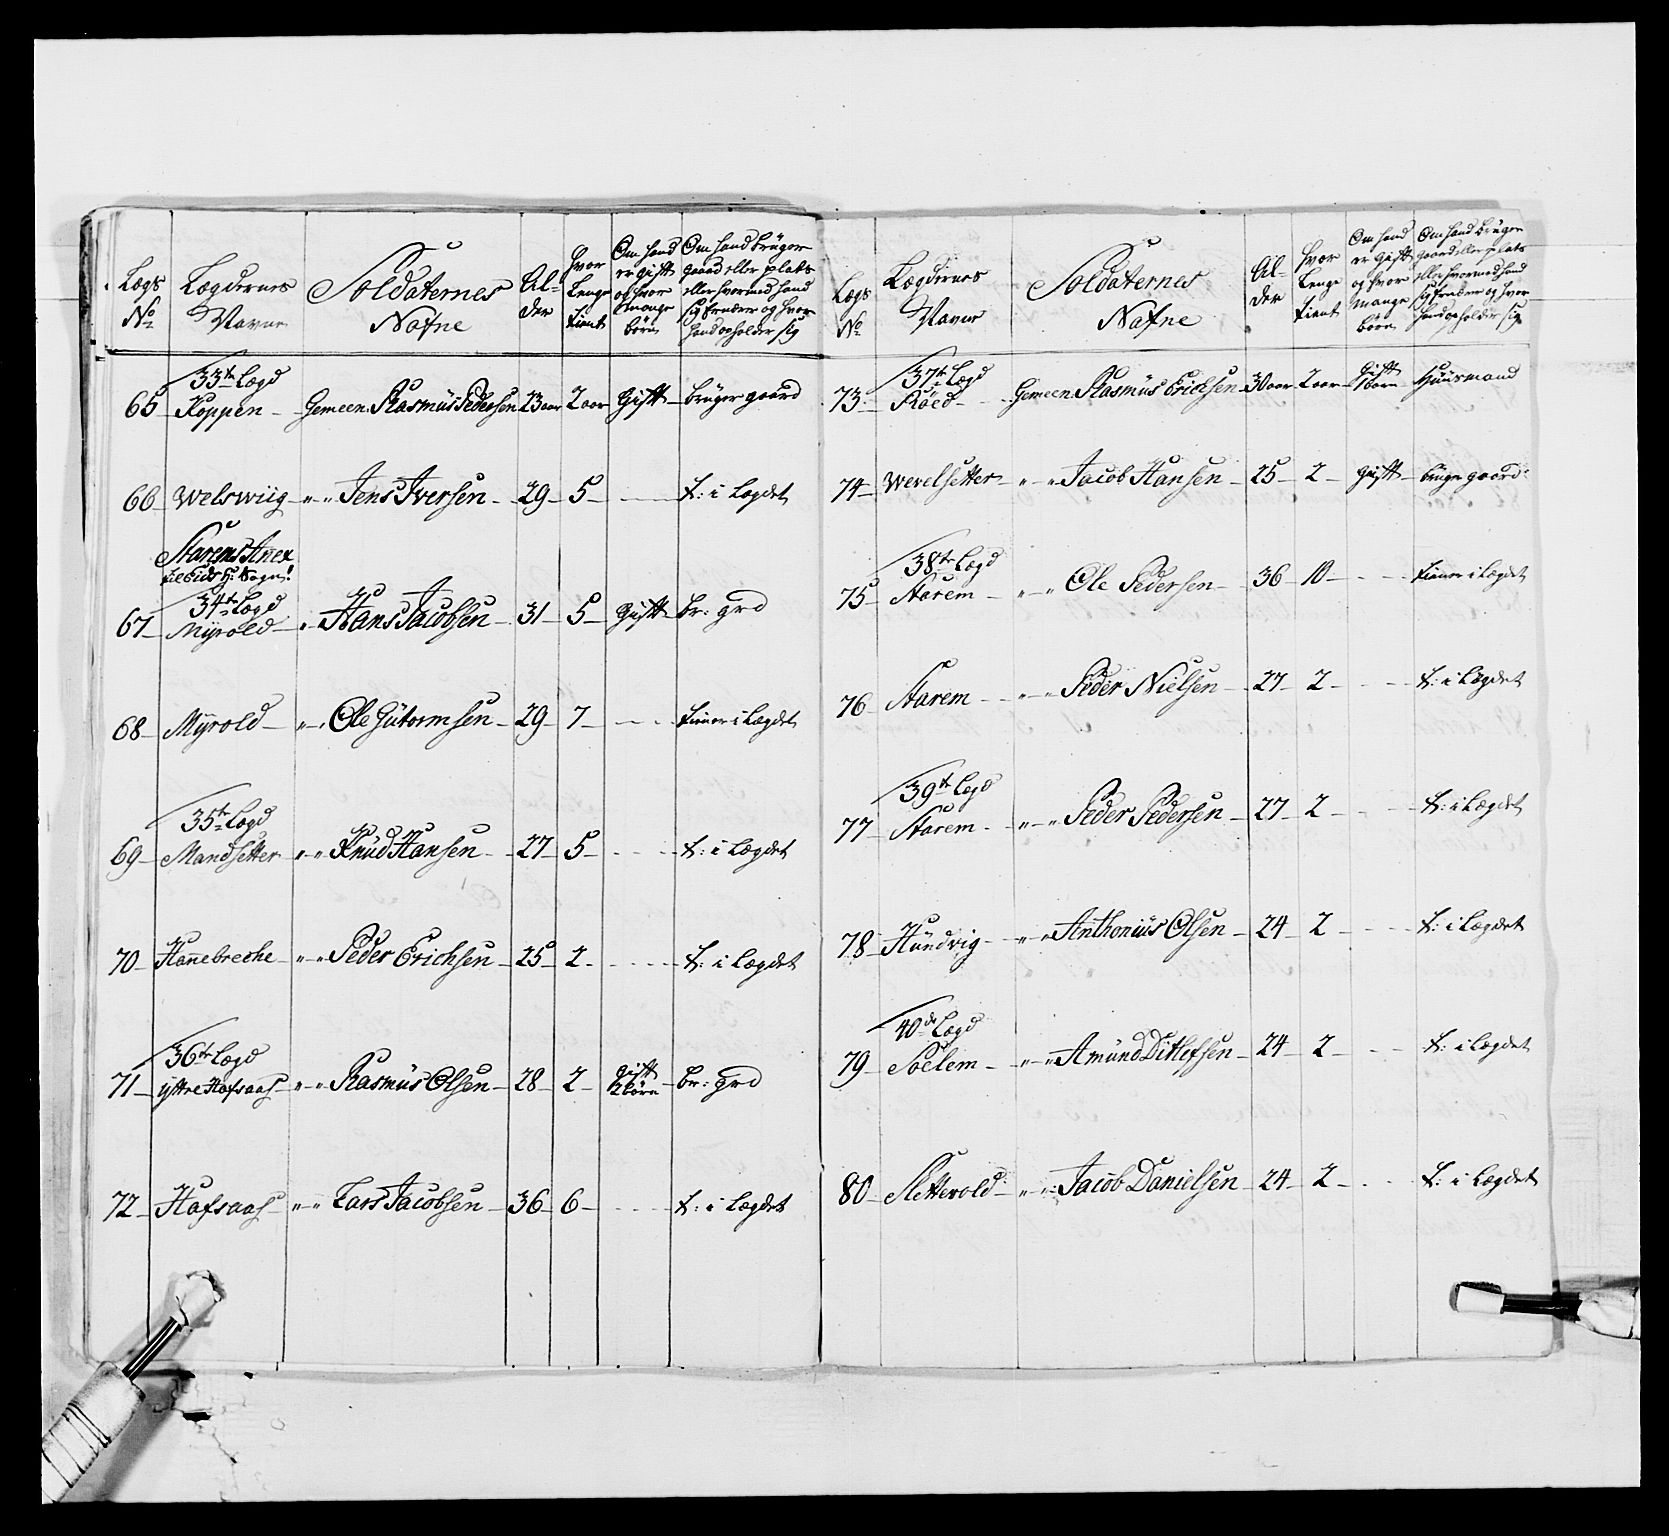 Lægs No | Lægdernes Navne | Soldaternes Nafne | Al-der | hvor Lenge tient | Om hand er gift og hvor mange börn | Om hand brüger gaard eller plats eller hvormed hand sig Ernærer og hvor hand opholder sig
33te Lægd
65 Koppen Gemeen Rasmüs Pedersen 23 aar 2 aar Gift brüger gaard
66 Welswiig " " Jens Iversen 29 5 t: i Lægdet
Starems Anex
til Eids H: Sogn!
34te Lægd
67 Myrold " Hans Jacobsen 31 5 Gift br: grd
68 Myrold " " Ole Gütormsen 29 7 tiener i Lægdet
35te Lægd
69 Mandsetter " " Knüd Hansen 27 5 t: i Lægdet
70 Hanebrechе " " Peder Erichsen 25 2 t: i Lægdet
36te Lægd
71 yttre Hafsaas " " Rasmüs Olsen 28 2 Gift 2 börn br: grd
72 Hafsaas " " Lars Jacobsen 36 6 t: i Lægdet
Lægs No | Lægdernes Navne | Soldaternes Nafne | Al-der | hvor Lenge tient | Om hand er gift og hvor mange börn | Om hand brüger gaard eller plats eller hvormed hand sig Ernærer og hvor hand opholder sig
37te Lægd
73 Röed Gemeen Rasmüs Erichsen 30 aar 2 aar Gift 1 barn Hüüsmand
74 Wevelsetter " " Jacob Hansen 25 2 Gift brüger gaard
38te Lægd
75 Starem " " Ole Pedersen 36 10 tiener i Lægdet
76 Starem " " Peder Nielsen 27 2 t: i Lægdet
39te Lægd
77 Starem " " Peder Pedersen 27 2 t: i Lægdet
78 Hündvig " " Anthoniüs Olsen 24 2 t: i Lægdet
40de Lægd
79 Soelem " " Amünd Ditlefsen 24 2 t: i Lægdet
80 Slettevold " " Jacob Danielsen 24 2 t: i Lægdet